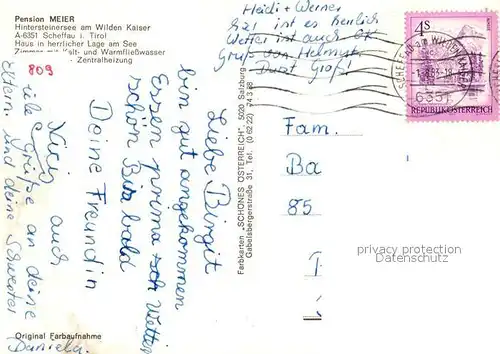 Pension MEIER
Hintersteinersee am Wilden Kaiser
A-6351 Scheffau i. Tirol
Haus in herrlicher Lage am See
Zimmer mit Kalt- und Warmfließwasser
- Zentralheizung
809
Liebe Birgit
bin gut angekommen
Essen prima
schön Bis bald
Deine Freundin
auch
viele Grüße an deine
Eltern und deine Schwester
Daniela
Original Farbaufnahme
Heidi + Werner
ist es herrlich
Wetter ist auch OK
Gruß von Helmut
Farbkarten „SCHÖNES ÖSTERREICH", 5020 Salzburg
Gabelsbergerstraße 31, Tel. (0 62 22) 74 3 88
4S
REPUBLIK ÖSTERREICH
SCHEFFAU am WILDEN KAISER
6351
Fam.
Ba
85
privacy protection
Datenschutz